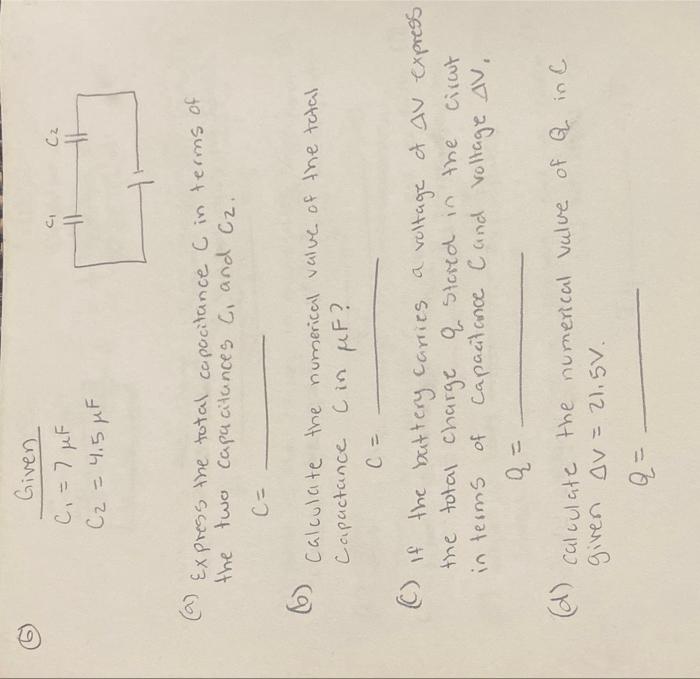 6
Given
C1 = 7 µF
C2 = 4.5 µF
C1 C2
(a) Express the total capacitance C in terms of
the two capacitances C1 and C2.
C =
(b) Calculate the numerical value of the total
Capactance C in µF?
C =
(c) If the battery carries a voltage of ΔV express
the total charge Q stored in the circut
in terms of capacitance C and voltage ΔV.
Q =
(d) calculate the numerical value of Q in C
given ΔV = 21.5V.
Q =